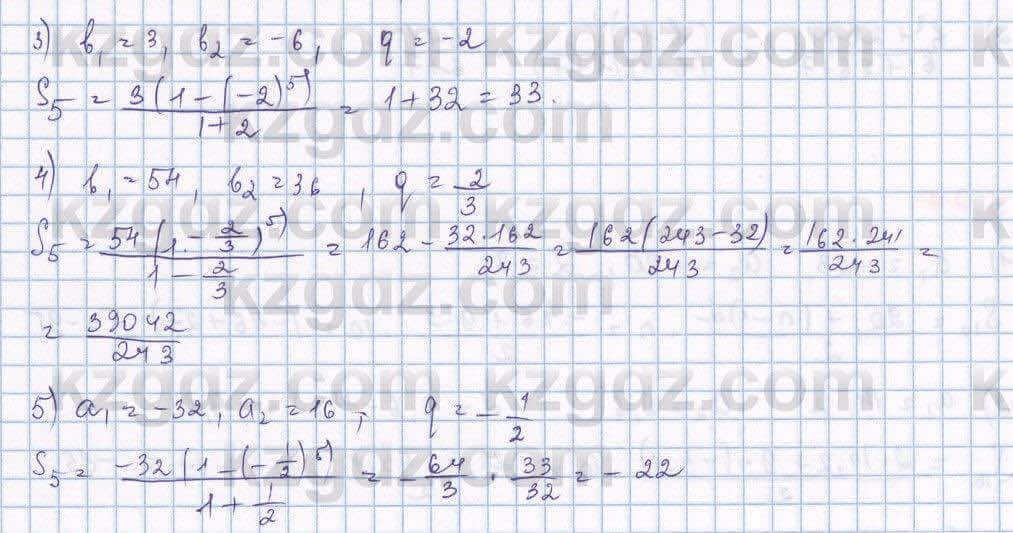 3) b₁ = 3, b₂ = -6, q = -2
S₅ = 3(1-(-2)⁵) / 1+2 = 1+32 = 33.
4) b₁ = 54, b₂ = 36, q = 2/3
S₅ = 54(1-(2/3)⁵) / 1-2/3 = 162 - 32·162/243 = 162(243-32)/243 = 162·241/243 =
= 39042/243
5) a₁ = -32, a₂ = 16, q = -1/2
S₅ = -32(1-(-1/2)⁵) / 1+1/2 = -64/3 · 33/32 = -22
kzgdz.com kzgdz.com
kzgdz.com
kzgdz.com kzgdz.com
kzgdz.com
kzgdz.com kzgdz.com